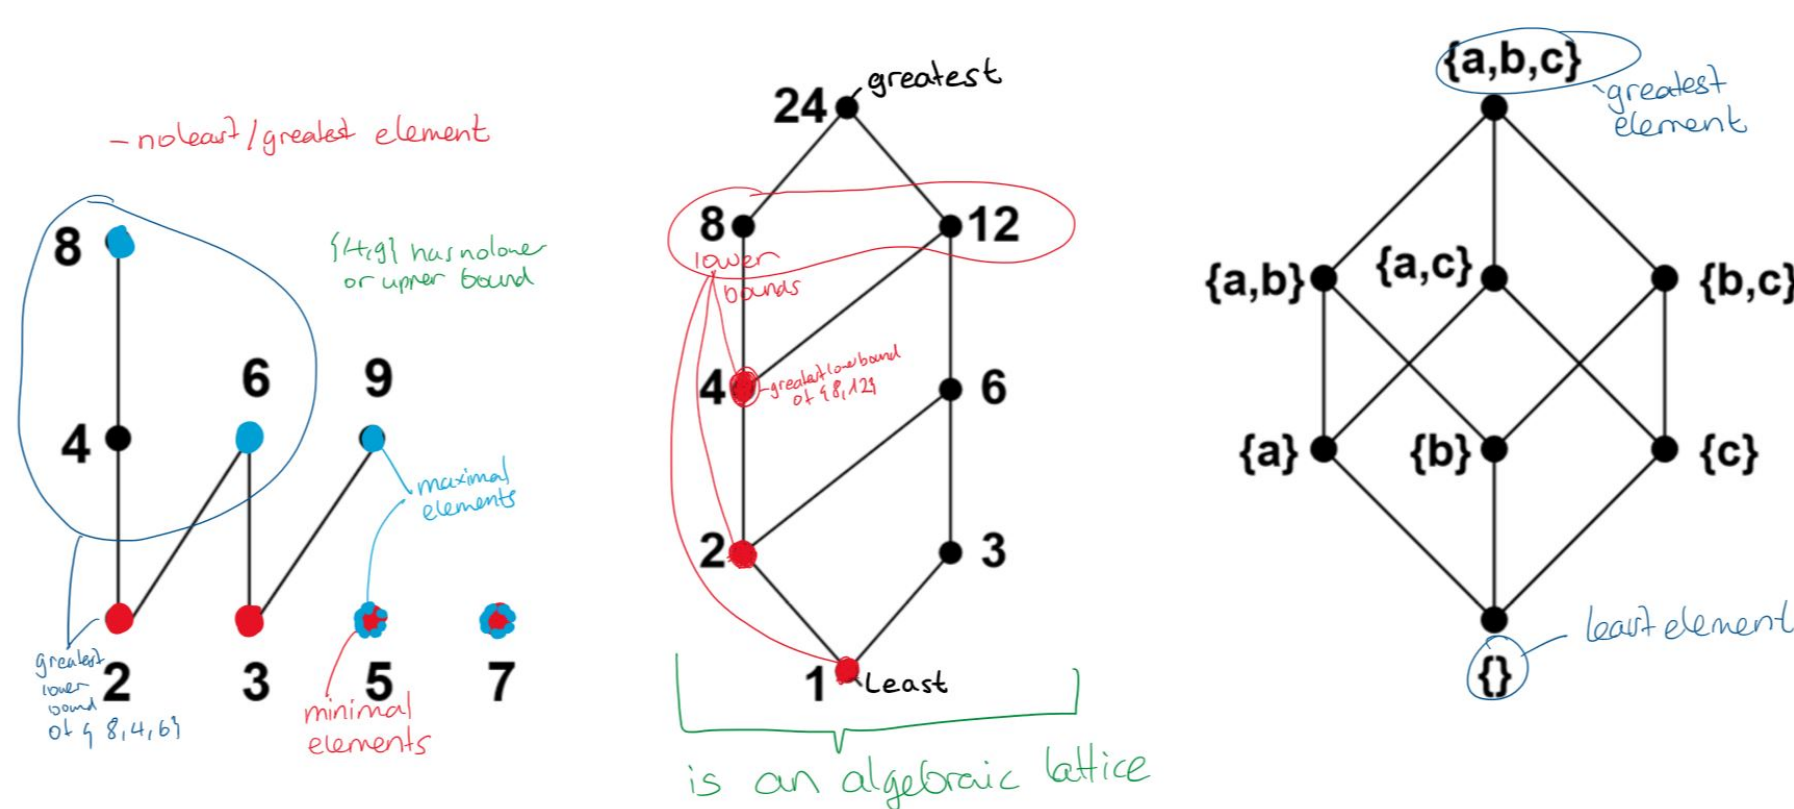 - no least/greatest element
8
{4,9} has no lower
or upper bound
6
9
4
maximal
elements
2
3
5
7
greatest
lower
bound
of { 8,4,6}
minimal
elements
24
greatest
8
12
lower
bounds
4
- greatest lower bound
of {8,12}
6
2
3
1
Least
is an algebraic lattice
{a,b,c}
greatest
element
{a,b}
{a,c}
{b,c}
{a}
{b}
{c}
least element
{}